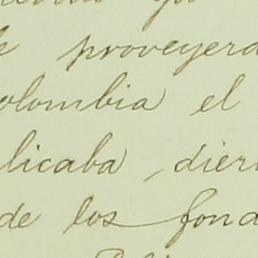 proveyera
olombia el
licaba, dier
de los fond